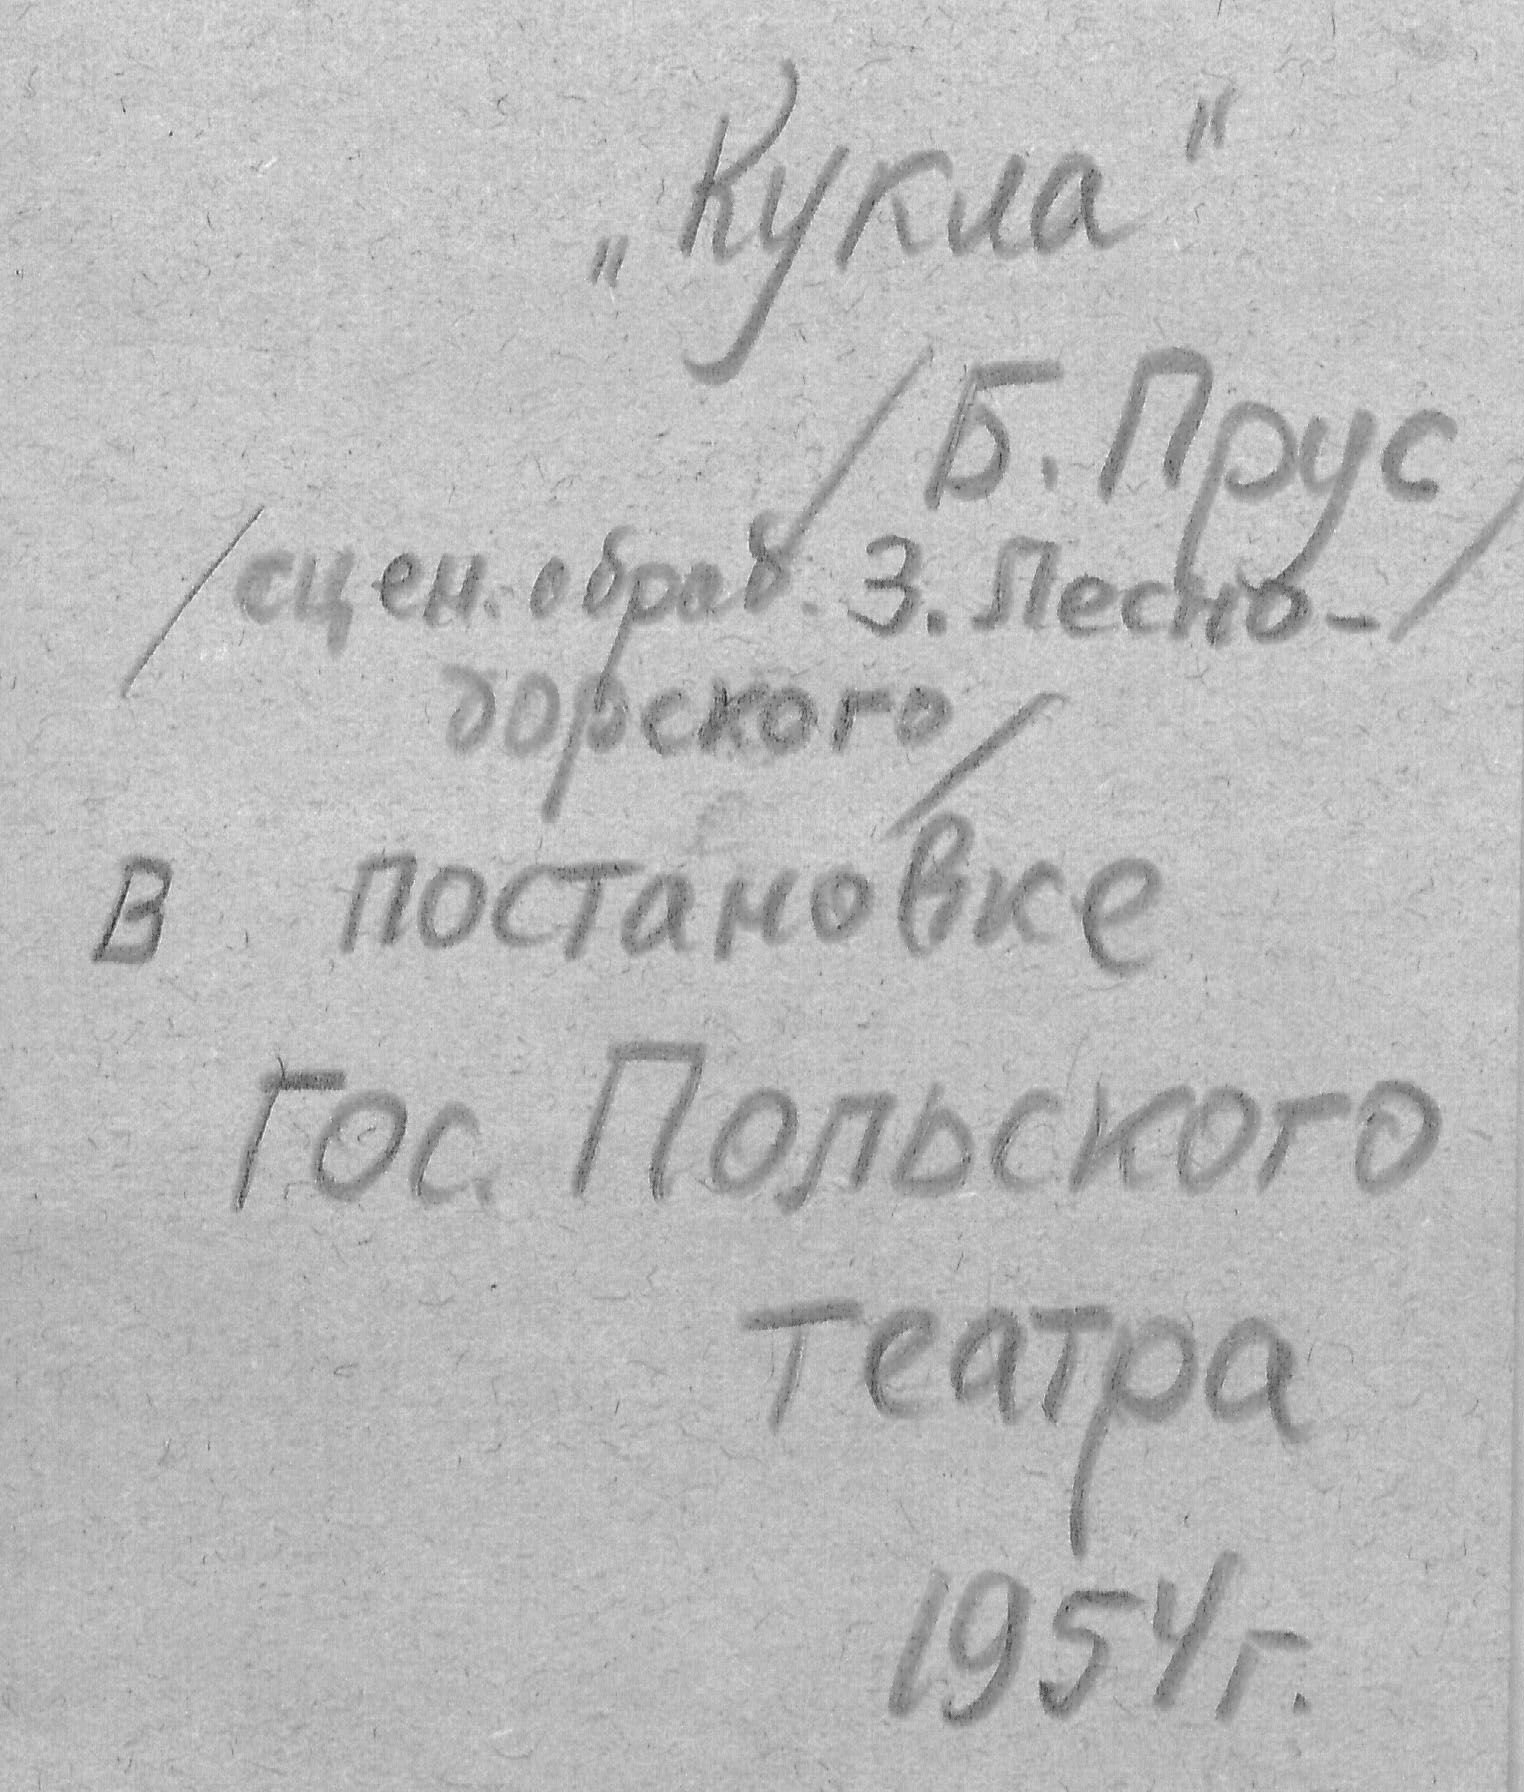 „Кукла"
/Б. Прус/
/сцен. обраб. З. Лесно-
дорского/
в постановке
Гос. Польского
театра
1954 г.